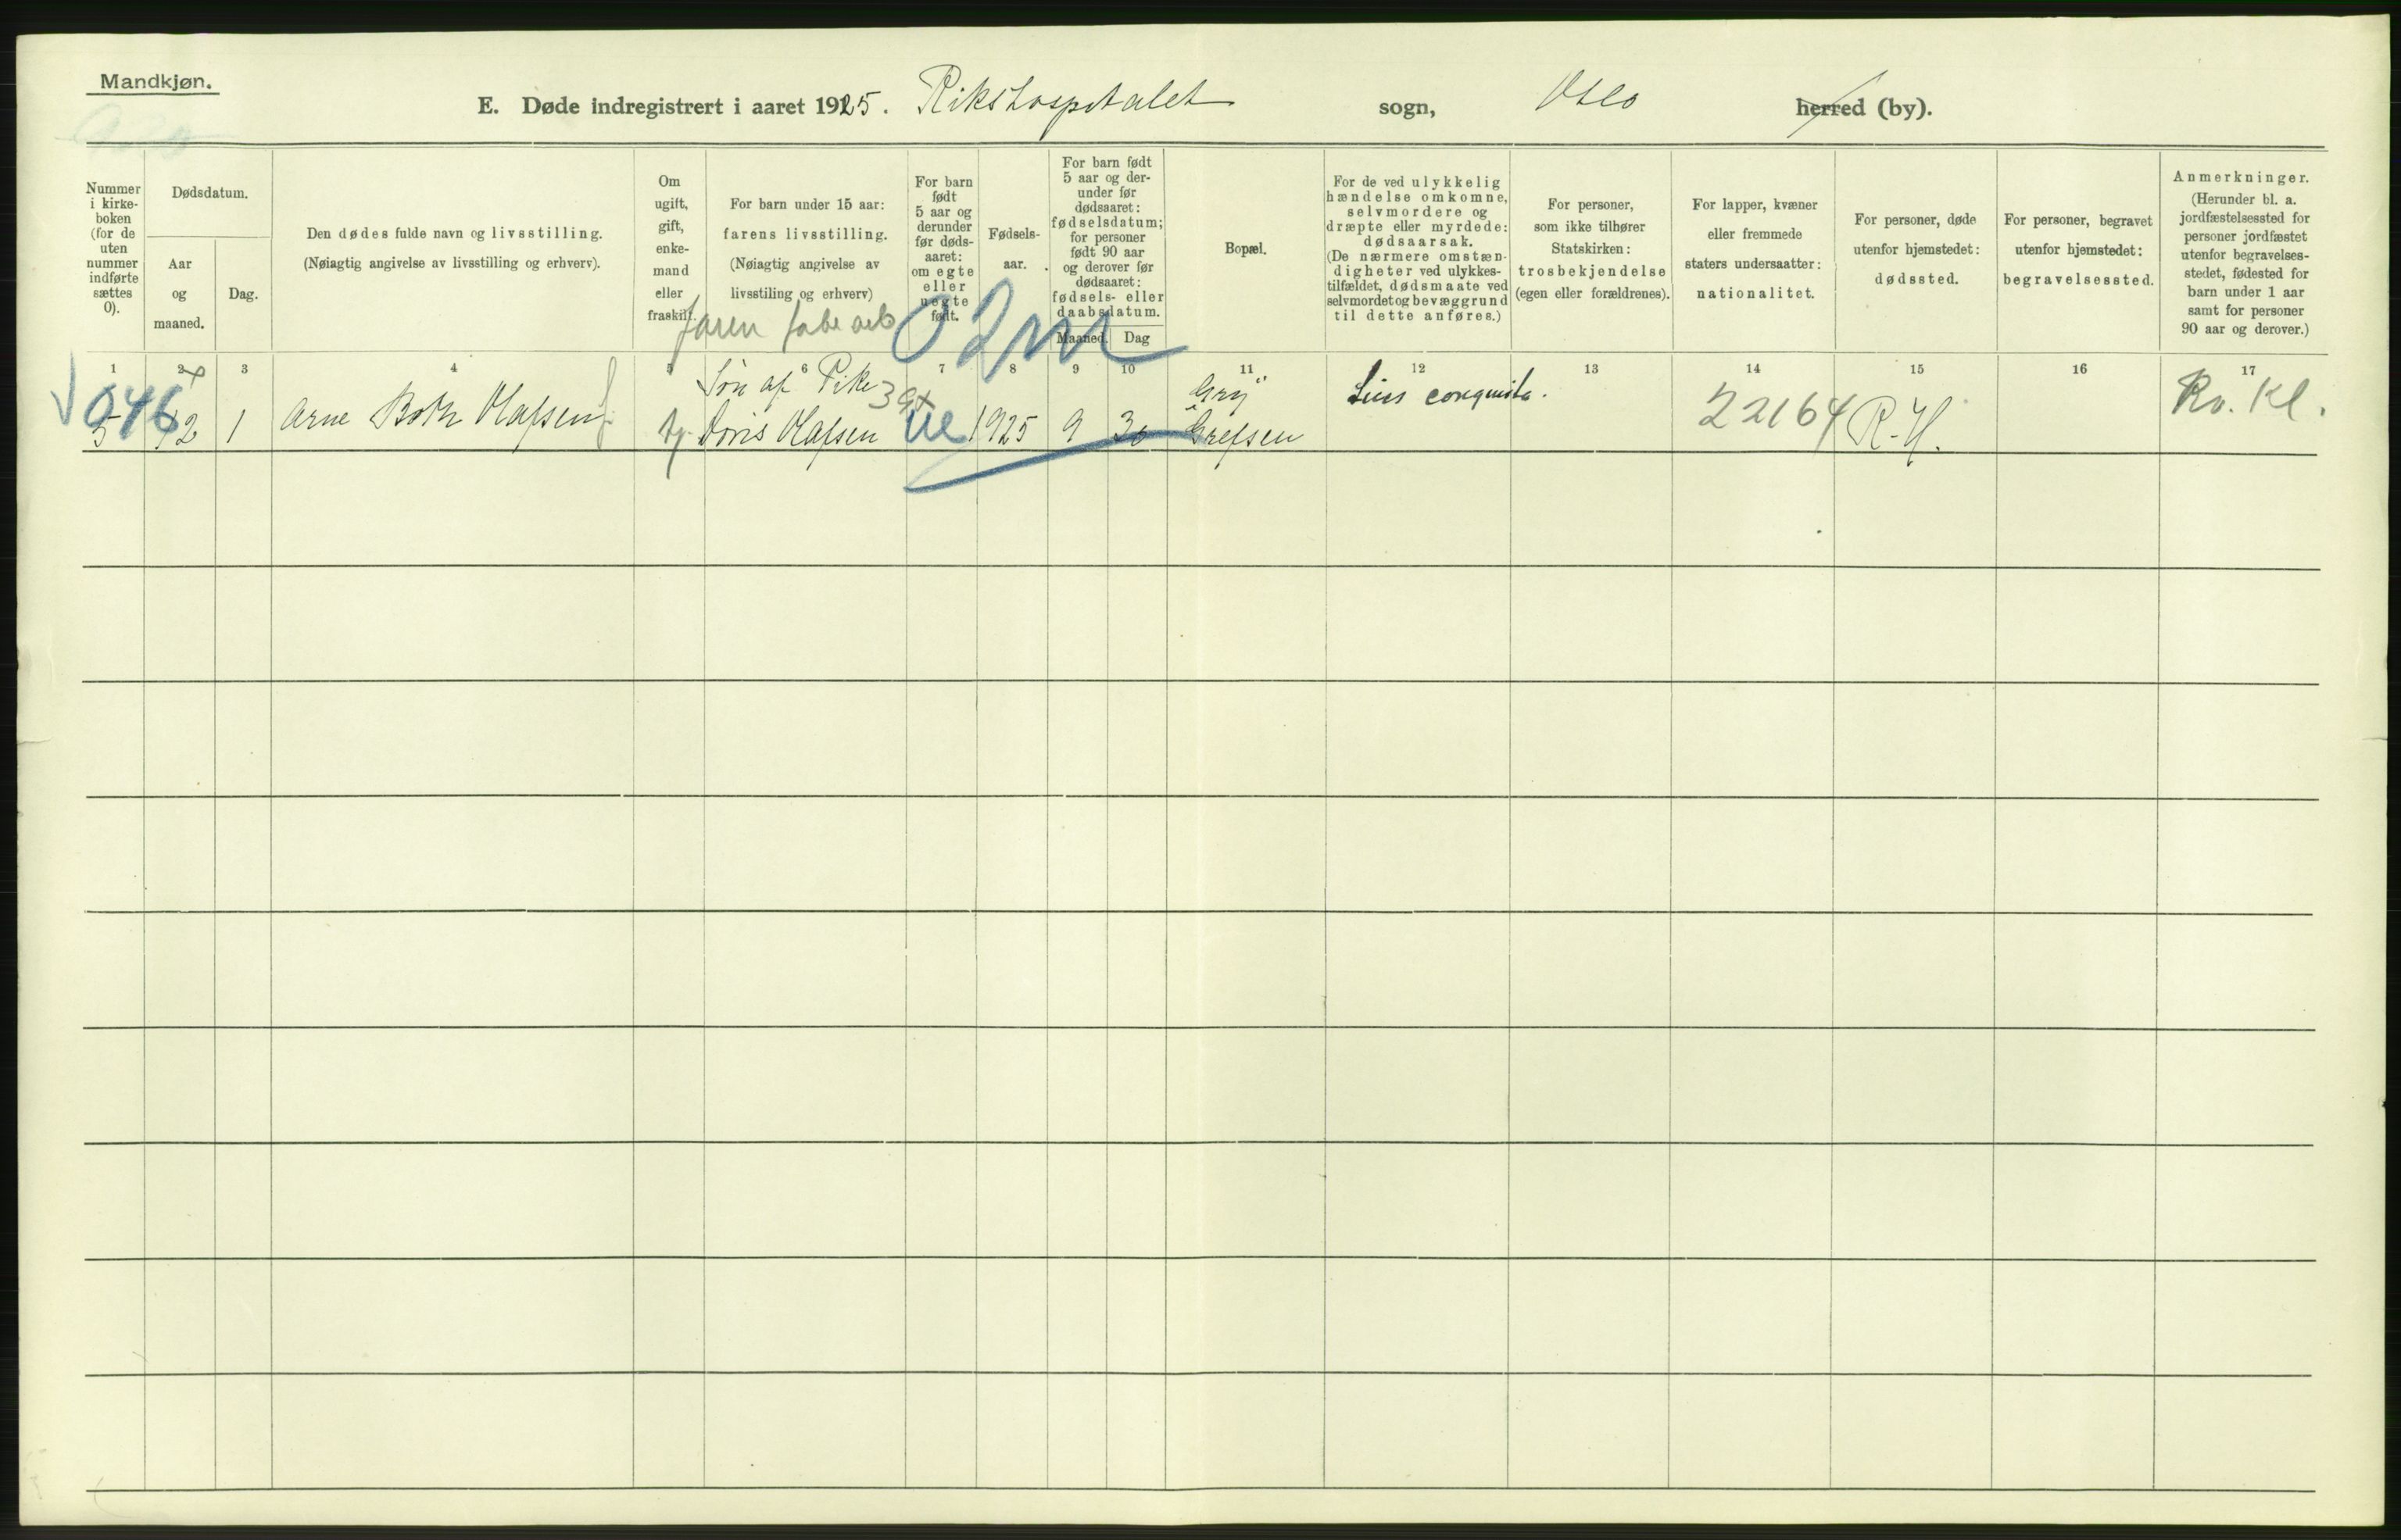 Mandkjøn.
E. Døde indregistrert i aaret 1925. Rikshospitalet sogn, Oslo herred (by).
Nummer i kirke-boken (for de uten nummer indførte sættes 0).
Dødsdatum.
Aar og maaned.
Dag.
Den dødes fulde navn og livsstilling.
(Nøiagtig angivelse av livsstilling og erhverv).
Om ugift, gift, enke-mand eller fraskilt.
For barn under 15 aar:
farens livsstilling.
(Nøiagtig angivelse av
livsstiling og erhverv)
For barn født 5 aar og derunder før døds-aaret: om egte eller uegte født.
Fødsels-aar.
For barn født 5 aar og der-under før dødsaaret: fødselsdatum; for personer født 90 aar og derover før dødsaaret: fødsels- eller daabsdatum.
Maaned. Dag
Bopæl.
For de ved ulykkelig hændelse omkomne, selvmordere og dræpte eller myrdede: dødsaarsak.
(De nærmere omstæn-digheter ved ulykkes-tilfældet, dødsmaate ved selvmordet og bevæggrund til dette anføres.)
For personer, som ikke tilhører Statskirken: trosbekjendelse (egen eller forældrenes).
For lapper, kvæner eller fremmede staters undersaatter: nationalitet.
For personer, døde utenfor hjemstedet: dødssted.
For personer, begravet utenfor hjemstedet: begravelsessted.
Anmerkninger.
(Herunder bl. a. jordfæstelsessted for personer jordfæstet utenfor begravelses-stedet, fødested for barn under 1 aar samt for personer 90 aar og derover.)
faren fabr arb
02m
1 2 3 4 5 6 7 8 9 10 11 12 13 14 15 16 17
046
5 12 1 Arne Both Olafsen
Søn af Pike
Doris Olafsen
ue 1925 9 30
Grefsen
Lues conquisita.
22164
R-H.
Kr. Kl.